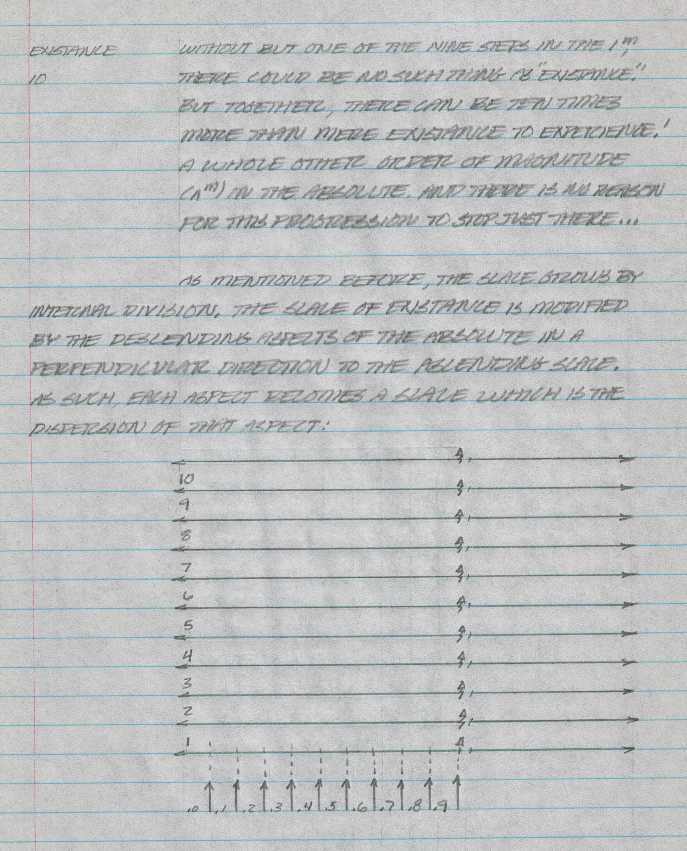 EXISTANCE WITHOUT BUT ONE OF THE NINE STEPS IN THE 1ᵐ,
10 THERE COULD BE NO SUCH THING AS "EXISTANCE."
BUT TOGETHER, THERE CAN BE TEN TIMES
MORE THAN MERE EXISTANCE TO EXPERIENCE.'
A WHOLE OTHER ORDER OF MAGNITUDE
(Λᵐ) IN THE ABSOLUTE. AND THERE IS NO REASON
FOR THIS PROGRESSION TO STOP JUST THERE...
AS MENTIONED BEFORE, THE SCALE GROWS BY
INTERNAL DIVISION. THE SCALE OF EXISTANCE IS MODIFIED
BY THE DESCENDING ASPECTS OF THE ABSOLUTE IN A
PERPENDICULAR DIRECTION TO THE ASCENDING SCALE.
AS SUCH, EACH ASPECT BECOMES A SCALE WHICH IS THE
DISPERSION OF THAT ASPECT:
10
9
8
7
6
5
4
3
2
1
.0 .1 .2 .3 .4 .5 .6 .7 .8 .9